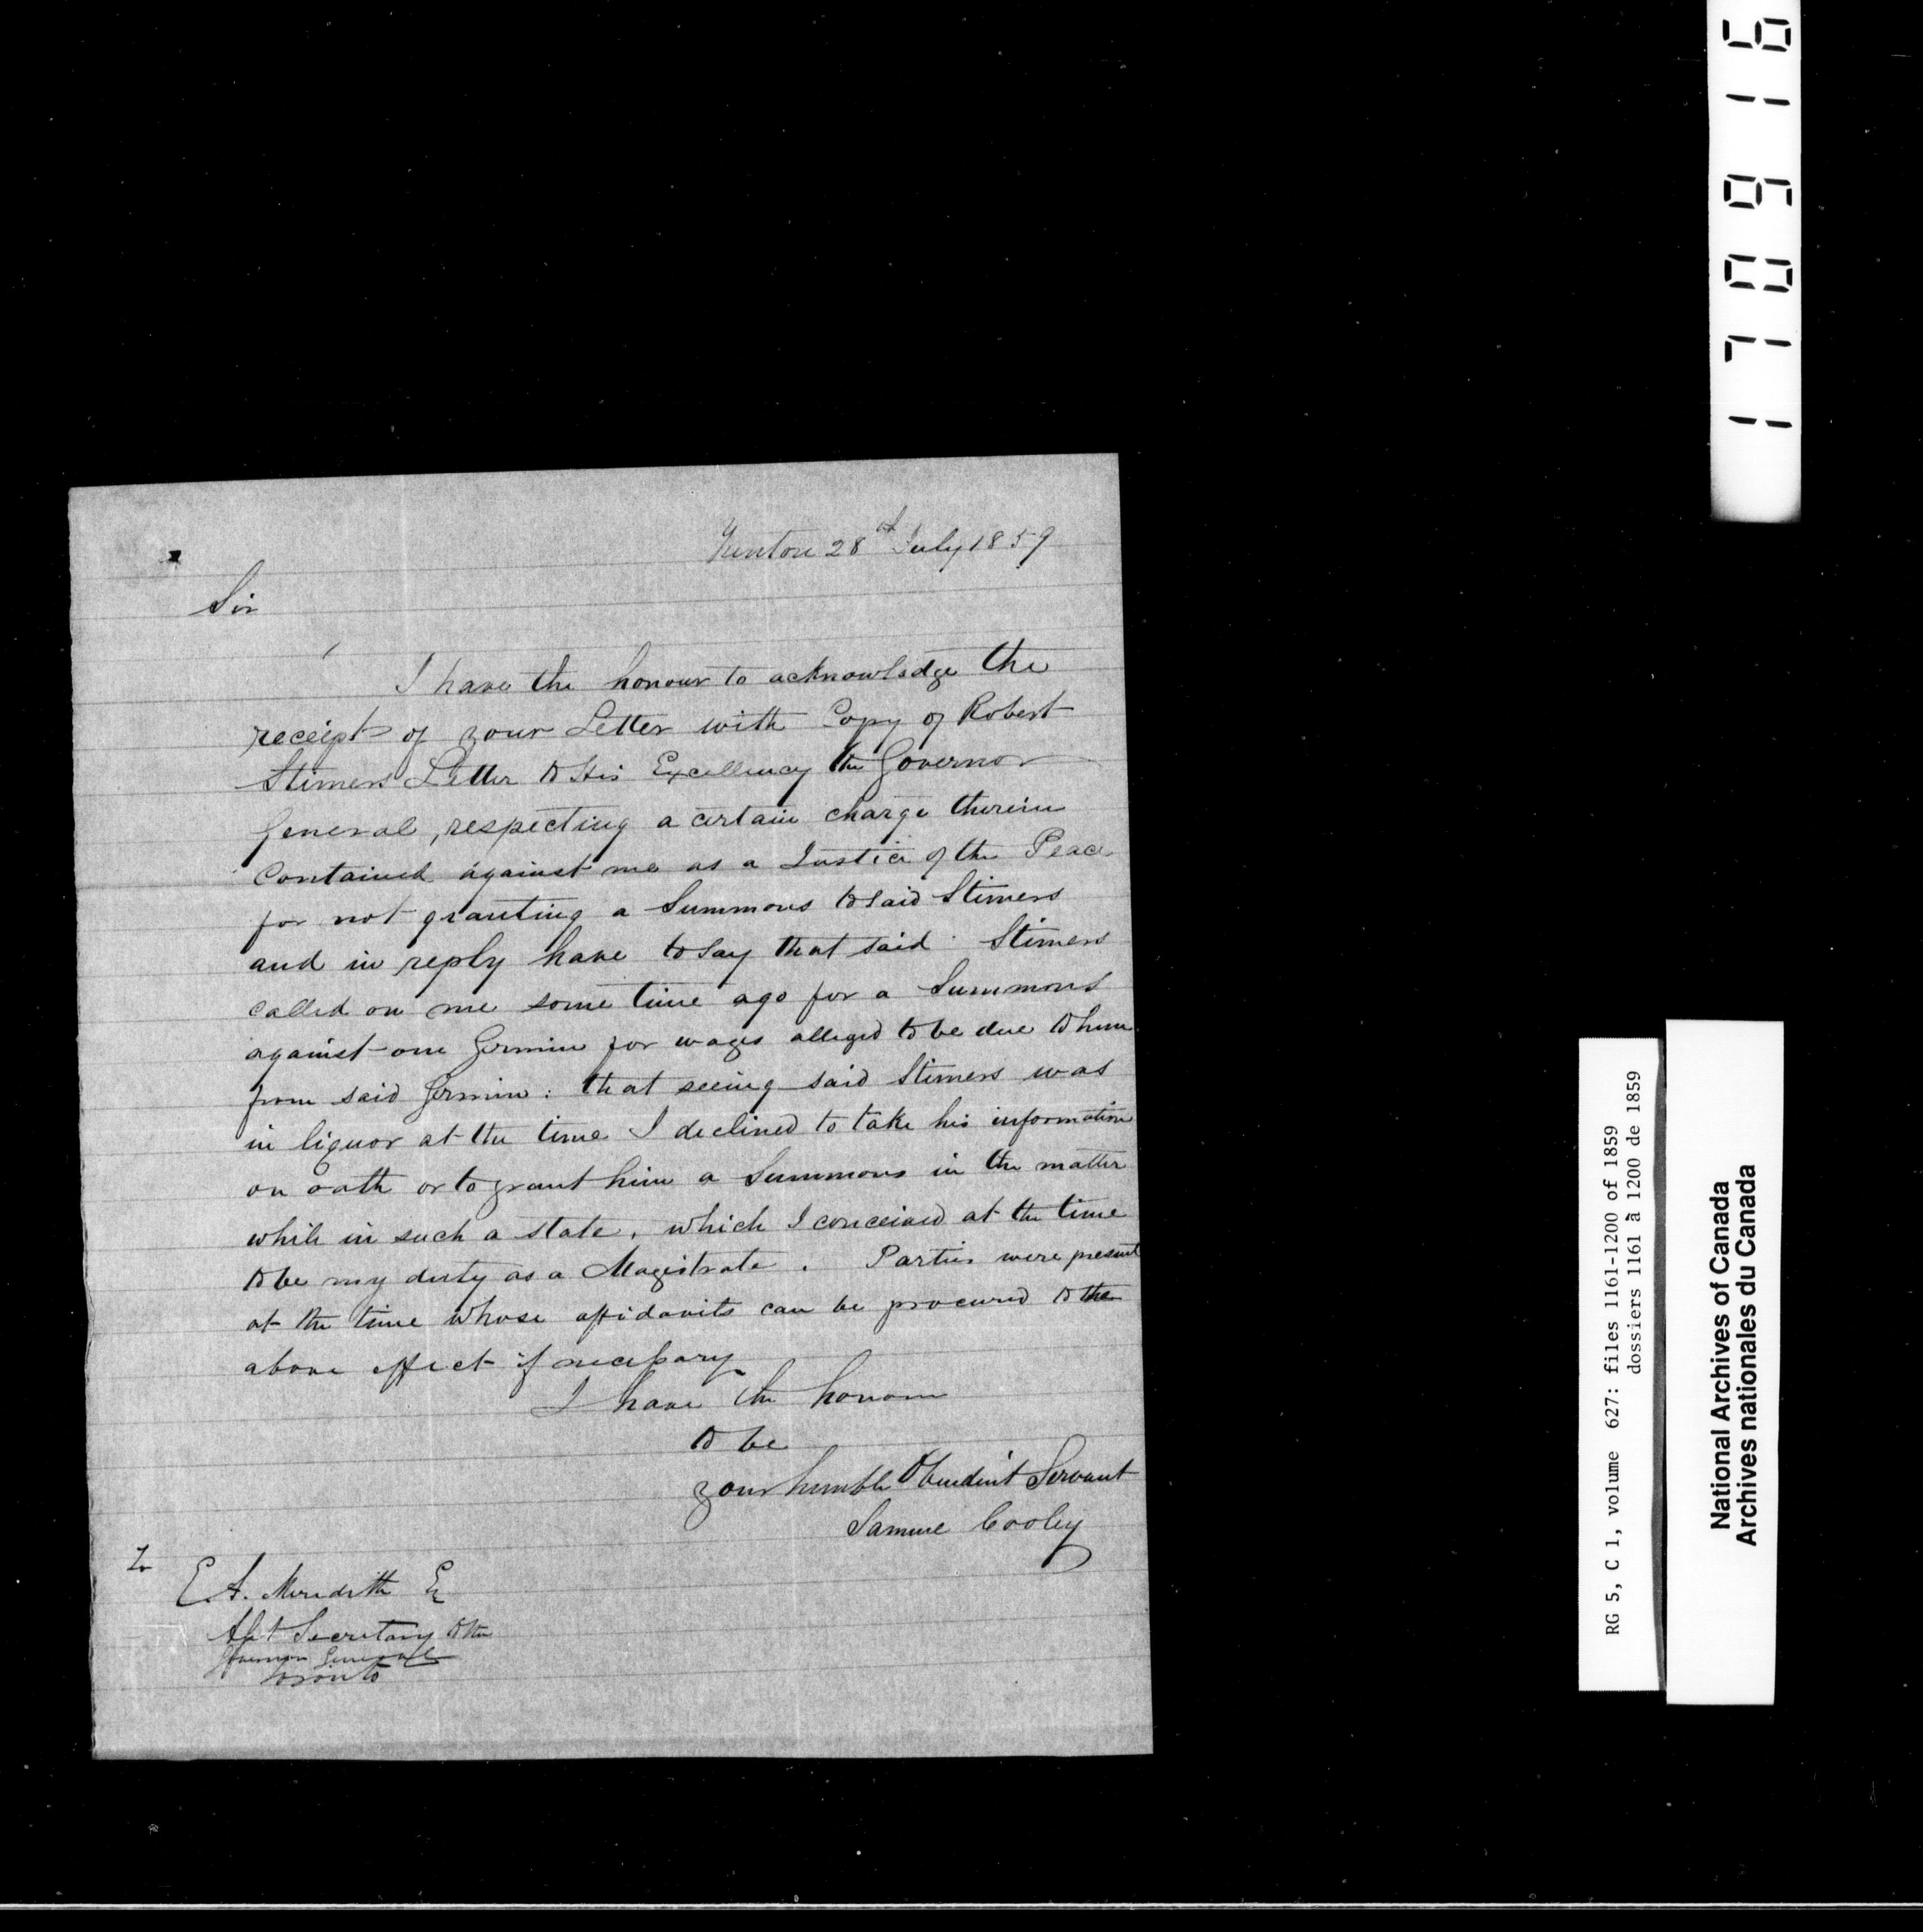 28th July 1859
Sir
I have the honour to acknowledge the
receipt of your Letter with Copy of Robert
Stimers Letter to His Excellency the Governor
General, respecting a certain charge therein
Contained against me as a Justice of the Peace
for not granting a Summons to said Stimers
and in reply have to say that said Stimers
called on me some time ago for a Summons
against one Germin for wages alleged to be due to him
from said Germin: that seeing said Stimers was
in liquor at the time I declined to take his information
on oath or to grant him a Summons in the matter
while in such a state, which I conceived at the time
to be my duty as a Magistrate. Parties were present
at the time whose affidavits can be procured to the
above effect if necessary
I have the honour
to be
your humble Obedient Servant
Samuel Cooley
To
E A. Meredith Esq
Asst Secretary to the
Governor General
Toronto
170916
RG 5, C 1, volume 627: files 1161-1200 of 1859
dossiers 1161 à 1200 de 1859
National Archives of Canada
Archives nationales du Canada